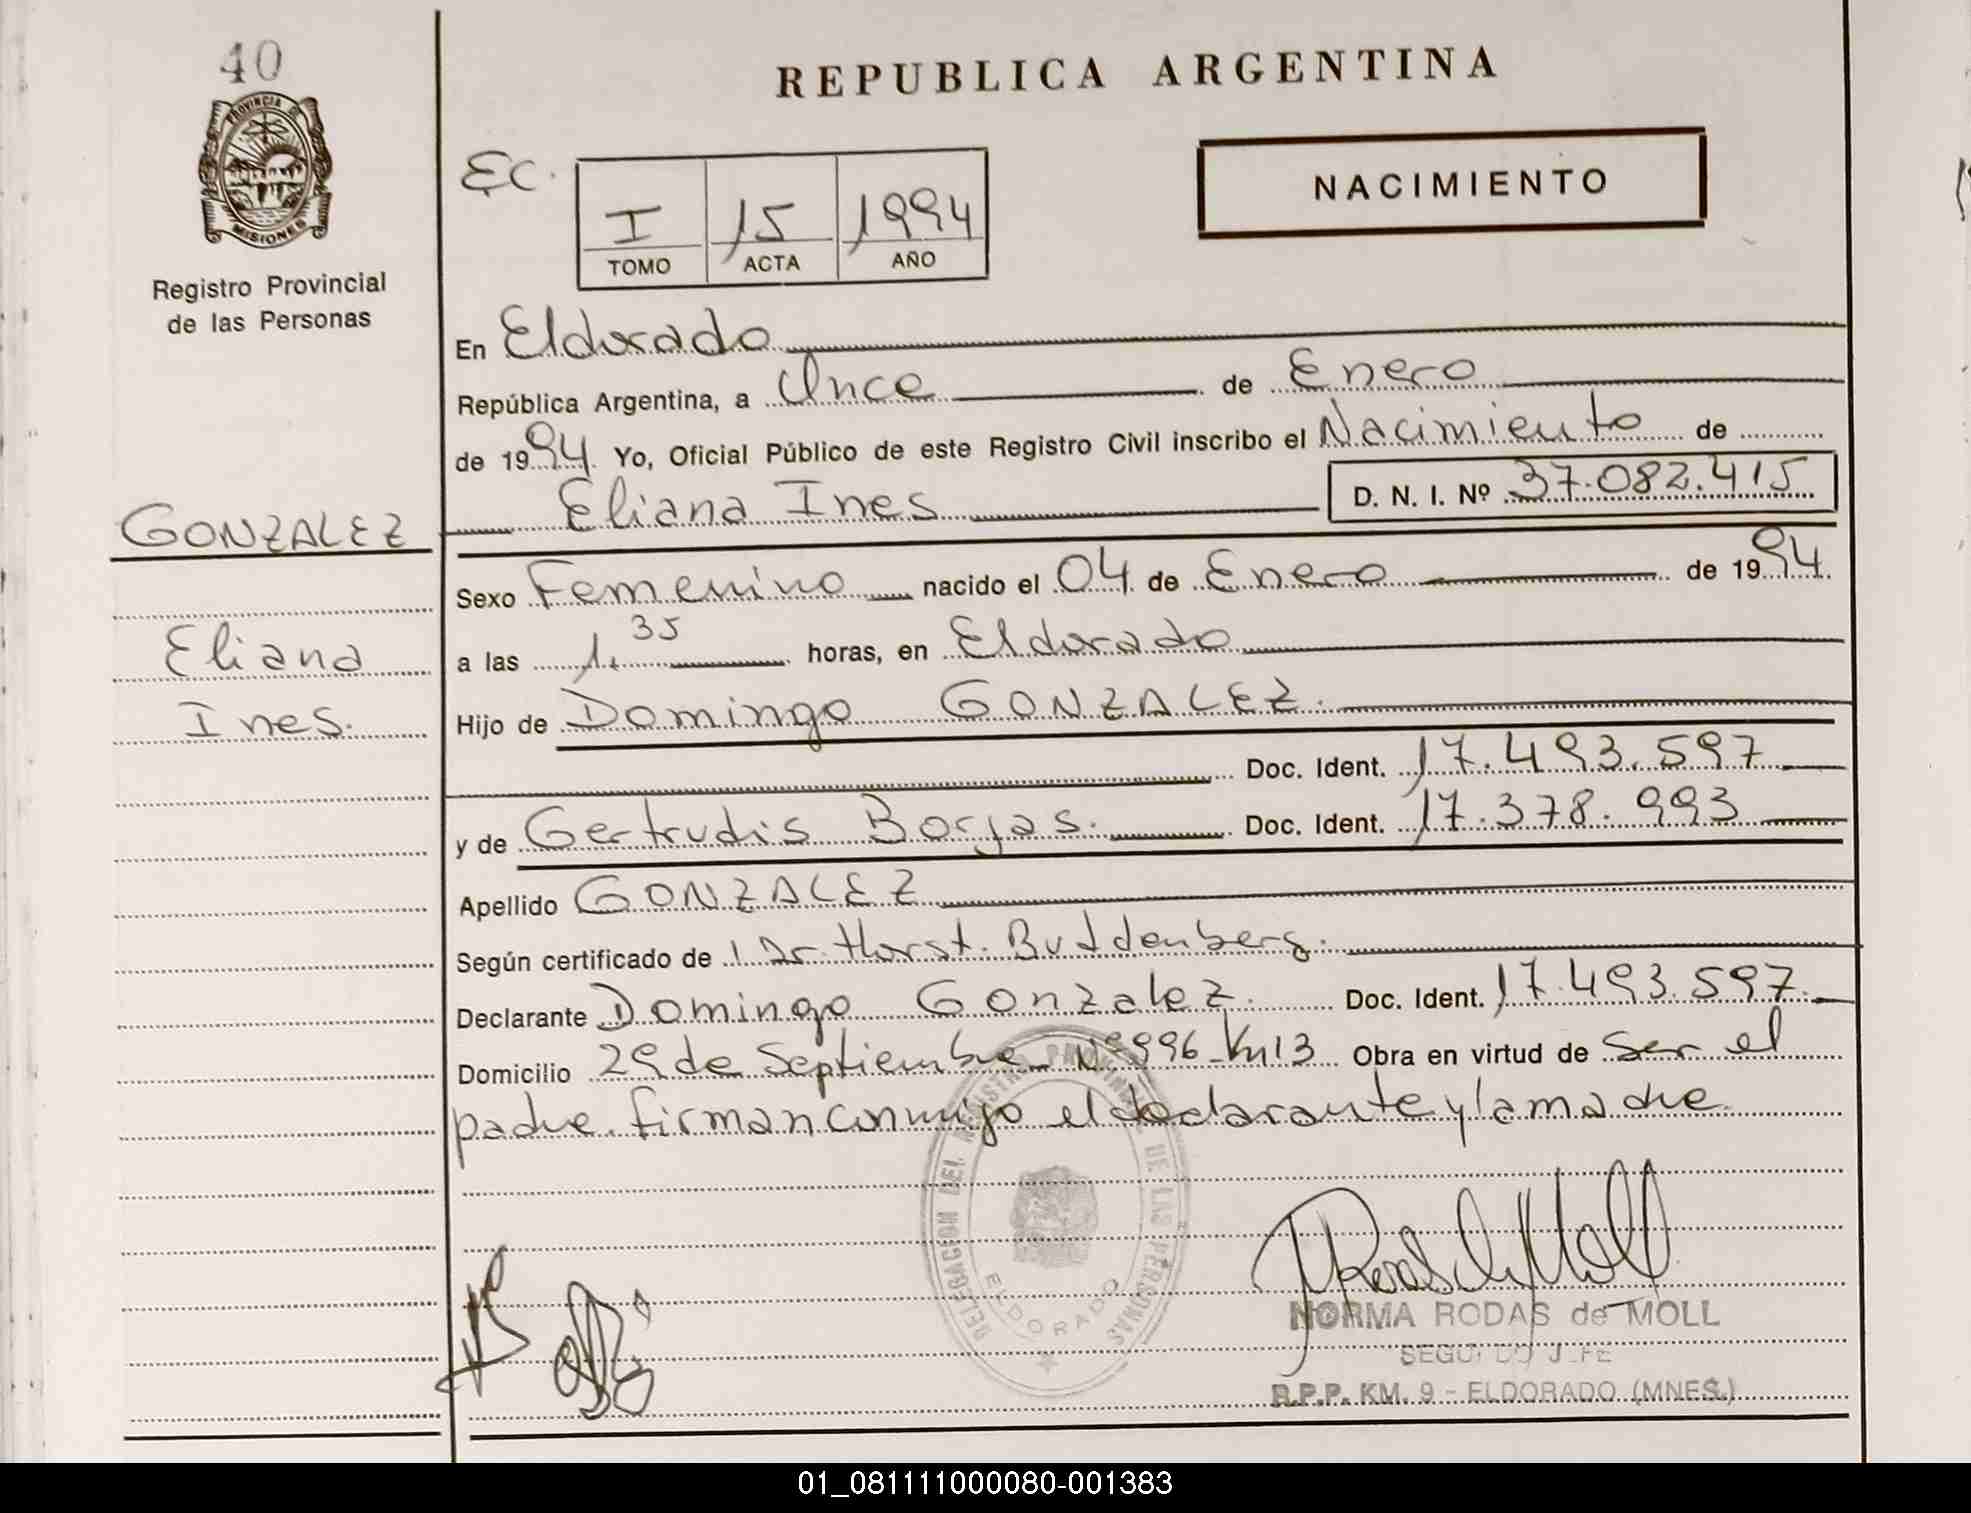 40
PROVINCIA DE
MISIONES
Registro Provincial
de las Personas
REPUBLICA ARGENTINA
EC.
I 15 1994
TOMO ACTA AÑO
NACIMIENTO
En Eldorado
República Argentina, a Once de Enero
de 1994. Yo, Oficial Público de este Registro Civil inscribo el Nacimiento de
Eliana Ines D. N. I. Nº 37.082.415
GONZALEZ
Eliana
Ines.
Sexo Femenino nacido el 04 de Enero de 1994.
a las 1.35 horas, en Eldorado
Hijo de Domingo GONZALEZ.
Doc. Ident. 17.493.597
y de Gertrudis Borjas. Doc. Ident. 17.378.993
Apellido GONZALEZ
Según certificado de Dr. Horst. Buddenberg.
Declarante Domingo Gonzalez. Doc. Ident. 17.493.597.
Domicilio 29 de Septiembre Nº 996 Km 13 Obra en virtud de Ser el
padre. firman conmigo el declarante y la madre.
DELEGACION DEL REGISTRO PROVINCIAL DE LAS PERSONAS
ELDORADO
NORMA RODAS de MOLL
SEGUNDO JEFE
R.P.P. KM. 9 - ELDORADO (MNES.)
01_081111000080-001383